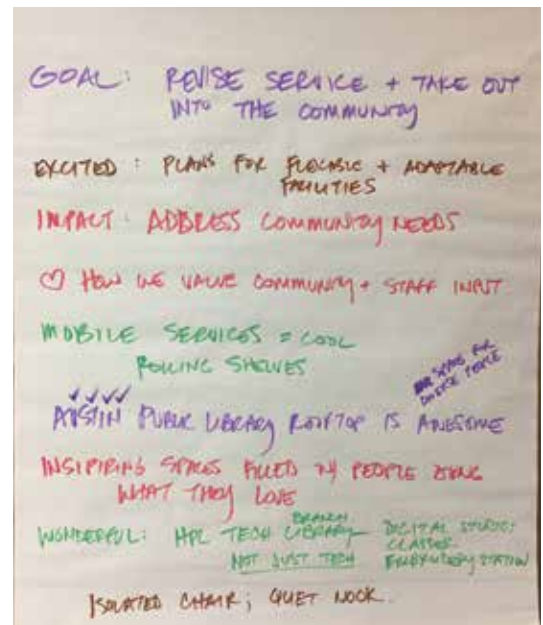 GOAL: REVISE SERVICE + TAKE OUT
INTO THE COMMUNITY
EXCITED: PLANS FOR FLEXIBLE + ADAPTABLE
FACILITIES
IMPACT: ADDRESS COMMUNITY NEEDS
♡ HOW WE VALUE COMMUNITY + STAFF INPUT
MOBILE SERVICES = COOL
ROLLING SHELVES
SPACE FOR
PEOPLE
AUSTIN PUBLIC LIBRARY ROOFTOP IS AWESOME
INSIPIRING SPACES FILLED W/ PEOPLE DOING
WHAT THEY LOVE
WONDERFUL: HPL TECH BRANCH LIBRARY
NOT JUST TECH
DIGITAL STUDIO;
CLASSES
EMBROIDERY STATION
ISOLATED CHAIR; QUIET NOOK.